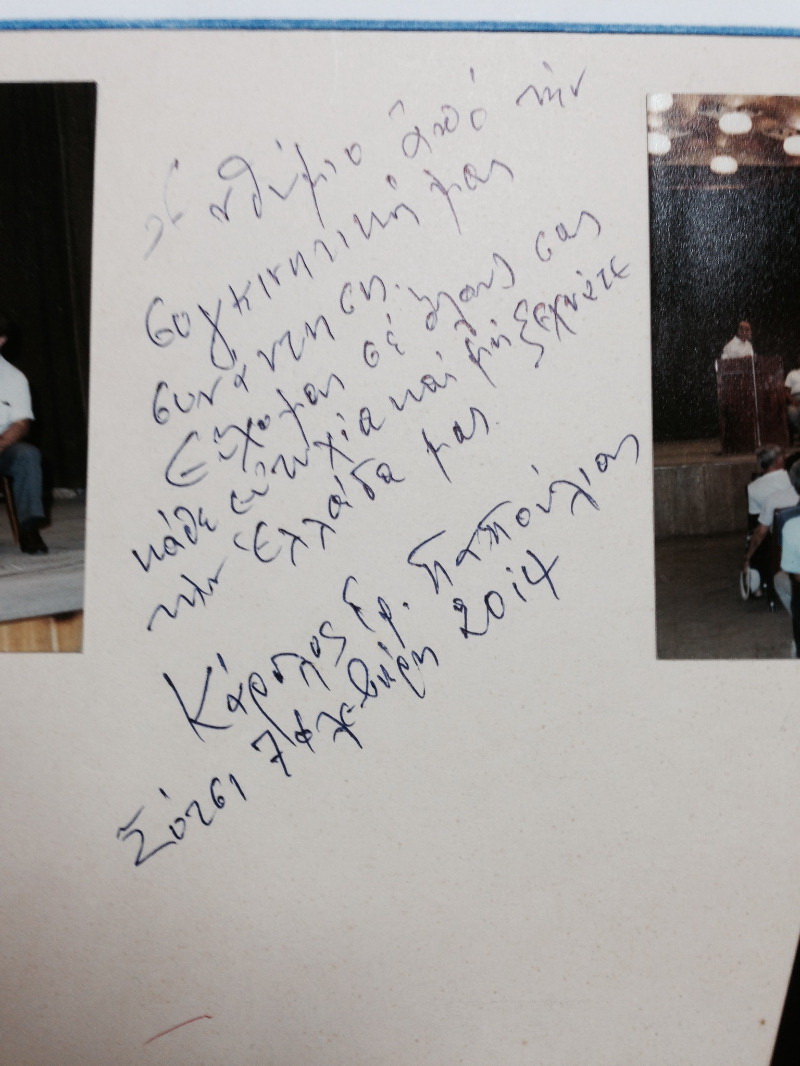 Ἐνθύμιο ἀπό τήν
συγκινητική μας
συνάντηση.
Εὔχομαι σέ ὅλους σας
κάθε εὐτυχία καί μή ξεχνᾶτε
τήν Ἑλλάδα μας.
Κάρολος Γρ. Παπούλιας
Σότσι 7 Φλεβάρη 2014